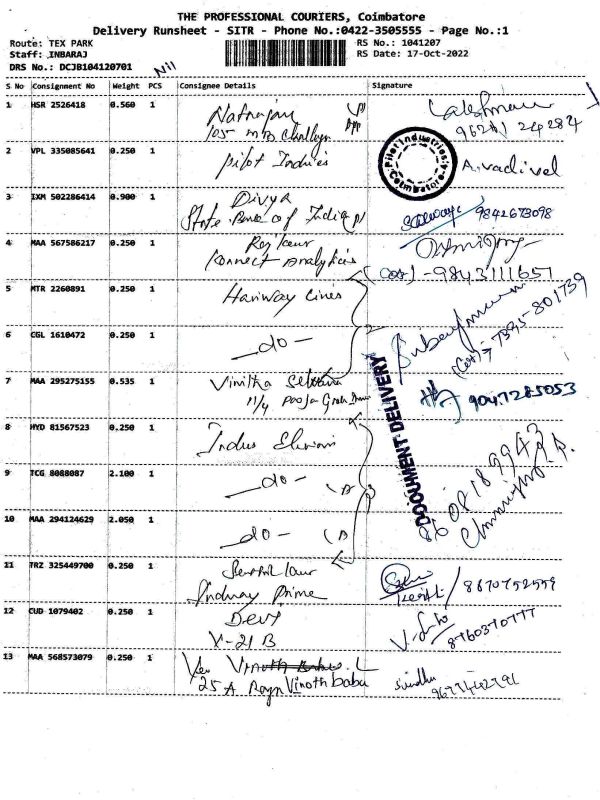 THE PROFESSIONAL COURIERS, Coimbatore
Delivery Runsheet - SITR - Phone No.:0422-3505555 - Page No.:1
Route: TEX PARK
Staff: INBARAJ
DRS No.: DCJB104120701
RS No.: 1041207
RS Date: 17-Oct-2022
Nil
S No Consignment No Weight PCS Consignee Details Signature
1 HSR 2526418 0.560 1 Natrajan
105
2 VPL 335085641 0.250 1 Pilot Indus A. vadivel
Pilot Industries
Coimbatore-4
3 IXM 502286414 0.900 1 Divya
State Bank of India 9842673098
4 MAA 567586217 0.250 1 Rajkaur
Konnect Analytics
9843111657
5 MTR 2260891 0.250 1 Hariway Lines
7395-801739
6 CGL 1610472 0.250 1 -do-
2
7 MAA 295275155 0.535 1 Vinitha
11/4 Pooja
9047285053
DOCUMENT DELIVERY
8 HYD 81567523 0.250 1 Indus
9 TCG 8088087 2.100 1 -do-
3
10 MAA 294124629 2.050 1 -do-
11 TRZ 325449700 0.250 1 Senthil
Prime 8670752559
12 CUD 1079402 0.250 1 Devi
V-21 B 8760370777
13 MAA 568573079 0.250 1
25 A Vinoth babu Sindhu